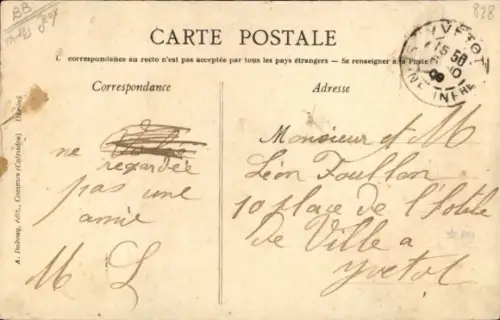 BB
828
CARTE POSTALE
La correspondance au recto n'est pas acceptée par tous les pays étrangers — Se renseigner à la Poste
Correspondance
Adresse
YVETOT
15 50
10
09
SEINE INFRE
ne
regardée
pas une
amie
M L
Monsieur et M
Léon Foullon
10 place de l'Hotel
de Ville a
Yvetot
A. Dubourg, édit., Commes (Calvados)